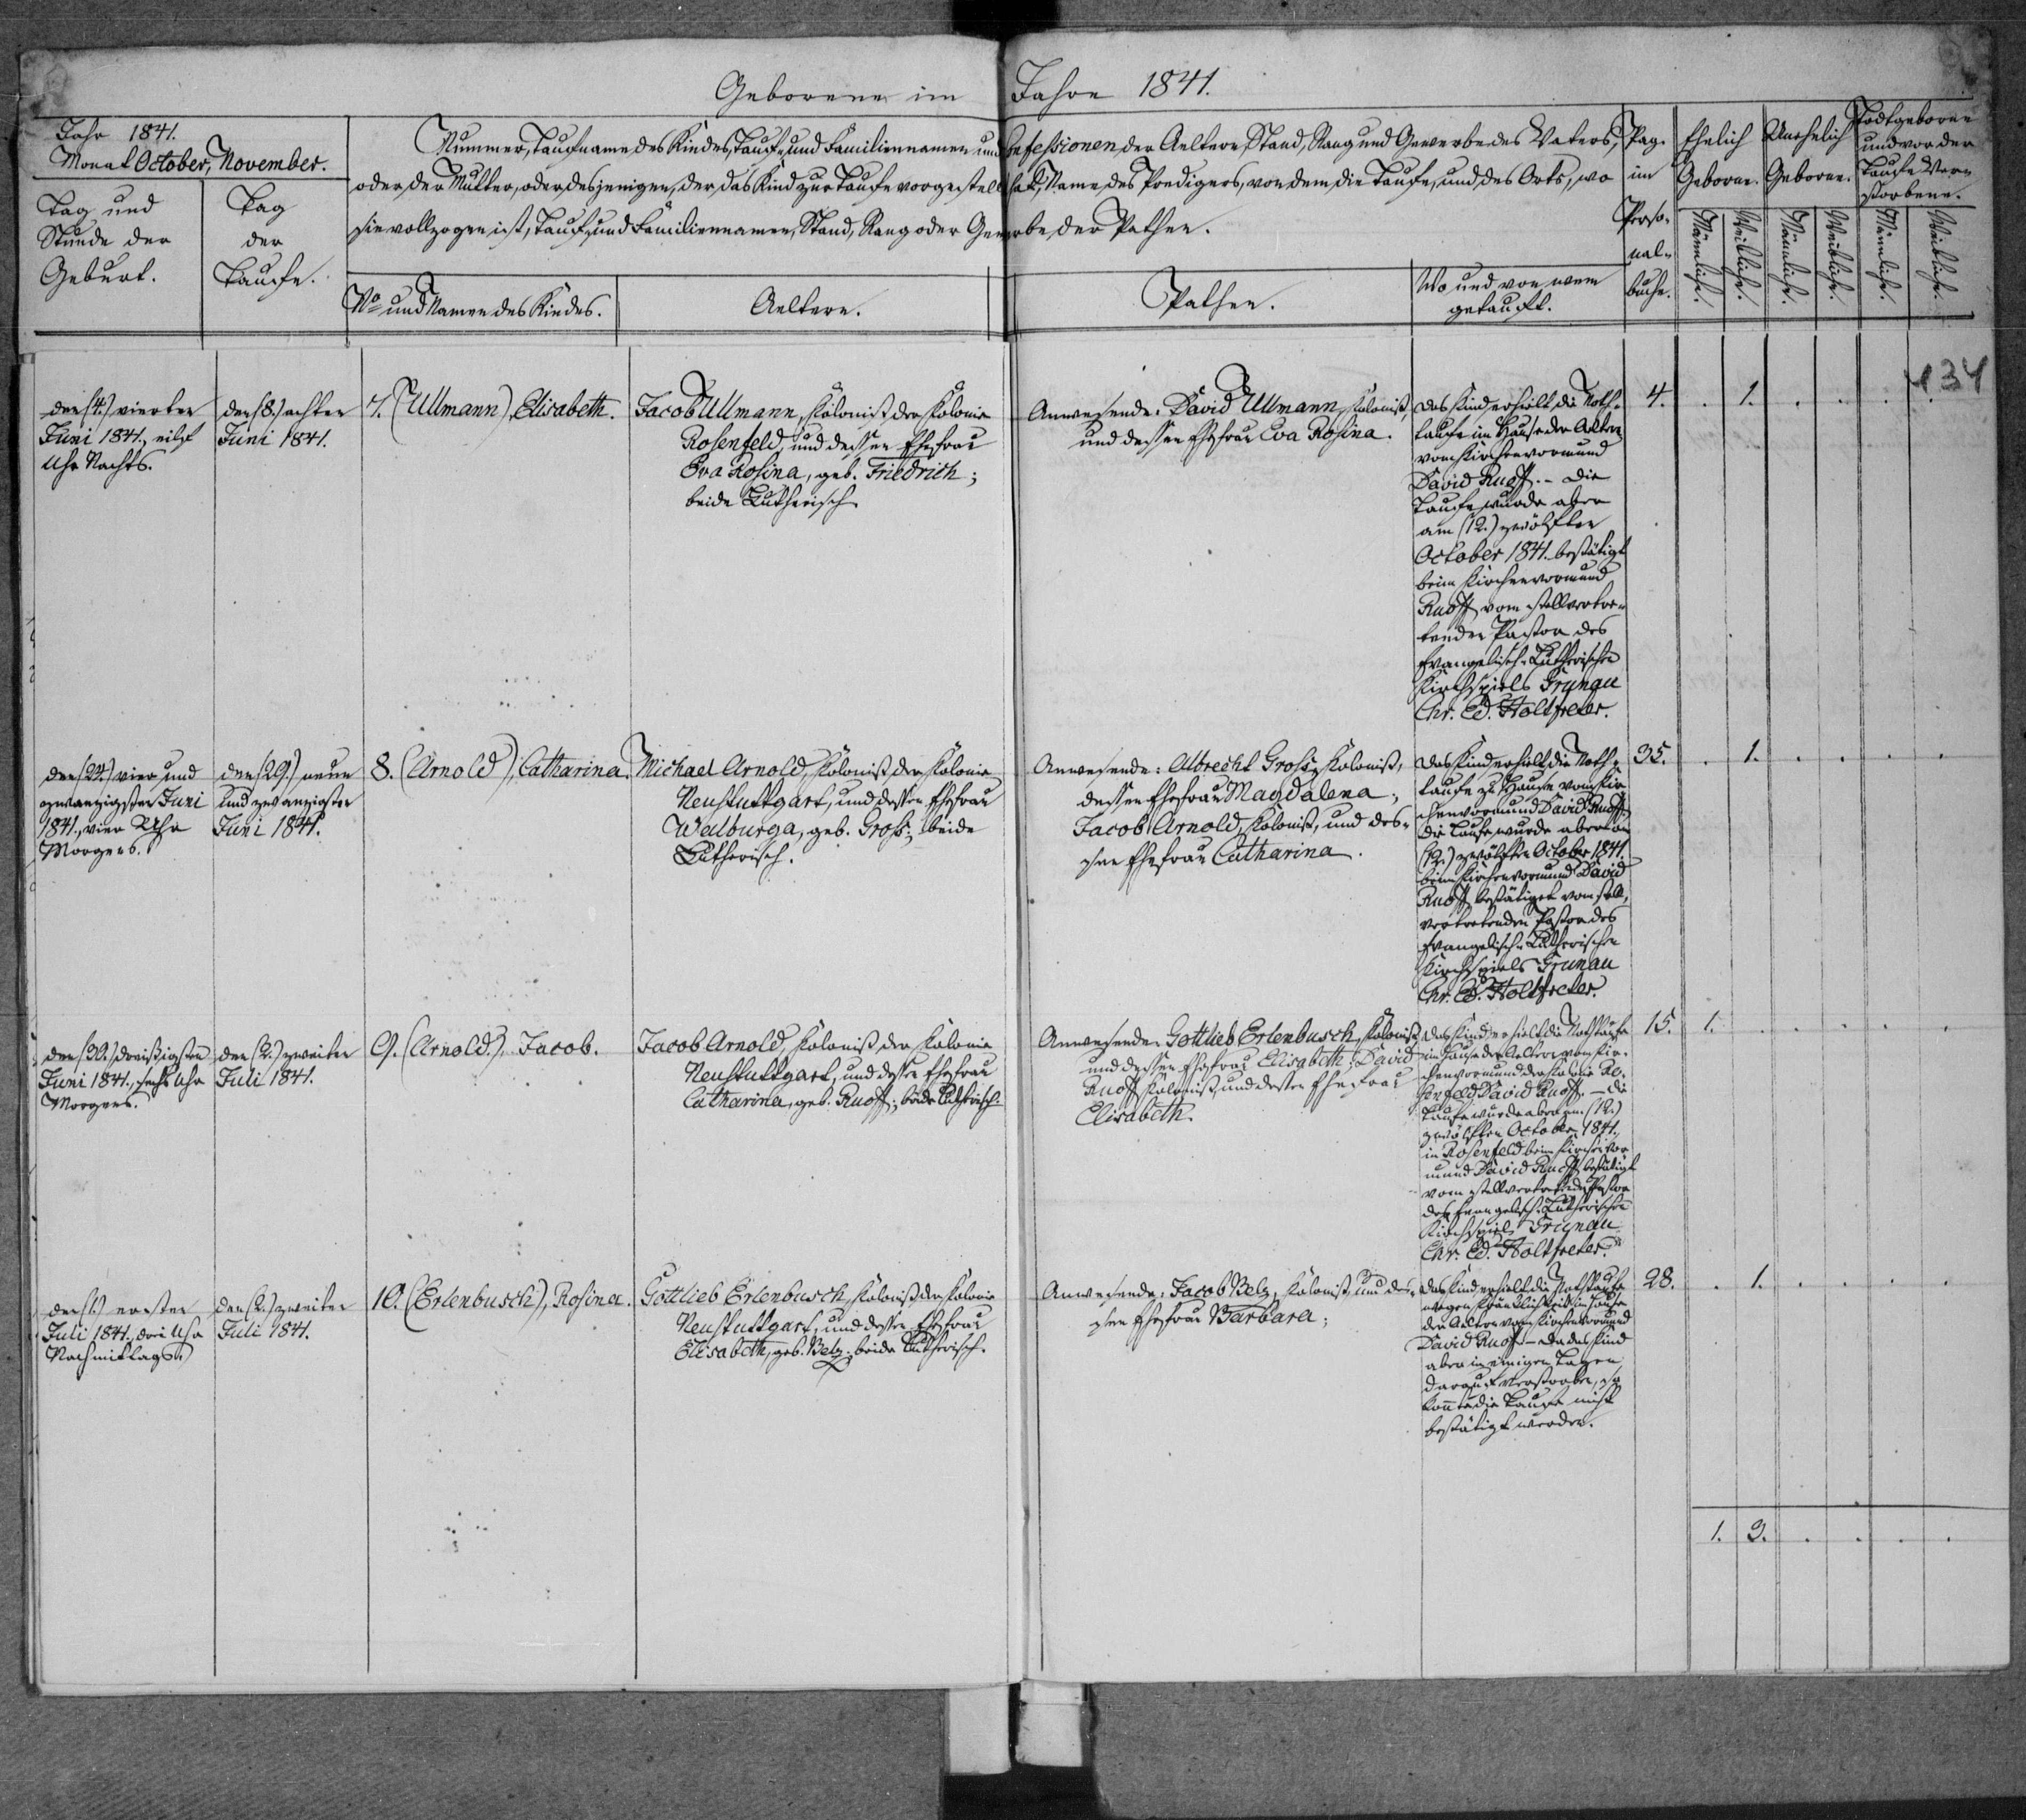 Geborene im Jahre 1841.
Jahr 1841.
Monat October, November.
Tag und
Stunde der
Geburt.
Tag
der
Taufe.
Nummer, Taufname des Kindes, Tauf- und Familiennamen und Confessionen der Aeltern, Stand, Rang und Gewerbe des Vaters,
oder der Mutter, oder desjenigen, der das Kind zur Taufe vorgestellt hat, Name des Predigers, von dem die Taufe, und des Orts, wo
sie vollzogen ist, Tauf- und Familiennamen, Stand, Rang oder Gewerbe der Pathen.
No und Namen des Kindes.
Aeltern.
Pathen.
Wo und von wem
getauft.
Pag.
im
Perso-
nal-
buche.
Ehelich
Geborne.
Unehelich
Geborne.
Todtgeborne
und vor der
Taufe Ver-
storbene.
Männliche.
Weibliche.
Männliche.
Weibliche.
Männliche.
Weibliche.
134
den (4.) vierten
Juni 1841., eilf
Uhr Nachts.
den (8.) achten
Juni 1841.
7. (Ullmann) Elisabeth.
Jacob Ullmann, Kolonist der Kolonie
Rosenfeld, und dessen Ehefrau
Eva Rosina, geb. Friedrich;
beide Lutherisch.
Anwesende: David Ullmann, Kolonist,
und dessen Ehefrau Eva Rosina.
Das Kind erhielt die Noth-
taufe im Hause der Aeltern
vom Kirchenvormund
David Ruoff. – Die
Taufe wurde aber
am (12.) zwölften
October 1841. bestätigt
beim Kirchenvormund
Ruoff vom stellvertre-
tenden Pastor des
Evangelisch-Lutherischen
Kirchspiels Grunau
Chr. Ed. Holtfreter.
4. . 1. . . . .
den (24.) vier und
zwanzigsten Juni
1841., vier Uhr
Morgens.
den (29.) neun
und zwanzigsten
Juni 1841.
8. (Arnold), Catharina.
Michael Arnold, Kolonist der Kolonie
Neustuttgart, und dessen Ehefrau
Walburga, geb. Gross; beide
Lutherisch.
Anwesende: Albrecht Gross, Kolonist,
dessen Ehefrau Magdalena;
Jacob Arnold, Kolonist, und des-
sen Ehefrau Catharina.
Das Kind erhielt die Noth-
taufe zu Hause vom Kir-
chenvormund David Ruoff.
Die Taufe wurde aber am
(12.) zwölften October 1841.
beim Kirchenvormund David
Ruoff bestätiget vom stell-
vertretenden Pastor des
Evangelisch-Lutherischen
Kirchspiels Grunau
Chr. Ed. Holtfreter.
35. . 1. . . . .
den (30.) dreißigsten
Juni 1841., sechs Uhr
Morgens.
den (2.) zweiten
Juli 1841.
9. (Arnold.), Jacob.
Jacob Arnold, Kolonist der Kolonie
Neustuttgart, und dessen Ehefrau
Catharina, geb. Ruoff; beide Lutherisch.
Anwesende: Gottlieb Erlenbusch, Kolonist,
und dessen Ehefrau Elisabeth; David
Ruoff, Kolonist, und dessen Ehefrau
Elisabeth.
Das Kind erhielt die Nothtaufe
im Hause der Aeltern vom Kir-
chenvormund der Kolonie Ro-
senfeld David Ruoff. – Die
Taufe wurde aber am (12.)
zwölften October 1841.,
in Rosenfeld beim Kirchenvor-
mund David Ruoff bestätigt
vom stellvertretenden Pastor
des Evangelisch-Lutherischen
Kirchspiels Grunau
Chr. Ed. Holtfreter.
15. 1. . . . . .
den (1.) ersten
Juli 1841., drei Uhr
Nachmittags.
den (2.) zweiten
Juli 1841.
10. (Erlenbusch), Rosina.
Gottlieb Erlenbusch, Kolonist der Kolonie
Neustuttgart, und dessen Ehefrau
Elisabeth, geb. Belz; beide Lutherisch.
Anwesende: Jacob Belz, Kolonist, und des-
sen Ehefrau Barbara;
Das Kind erhielt die Nothtaufe
wegen Kränklichkeit im Hause
der Aeltern vom Kirchenvormund
David Ruoff. – Da das Kind
aber in einigen Tagen
darauf verstorben, so
konnte die Taufe nicht
bestätigt werden.
28. . 1. . . . .
1. 3. . . . .